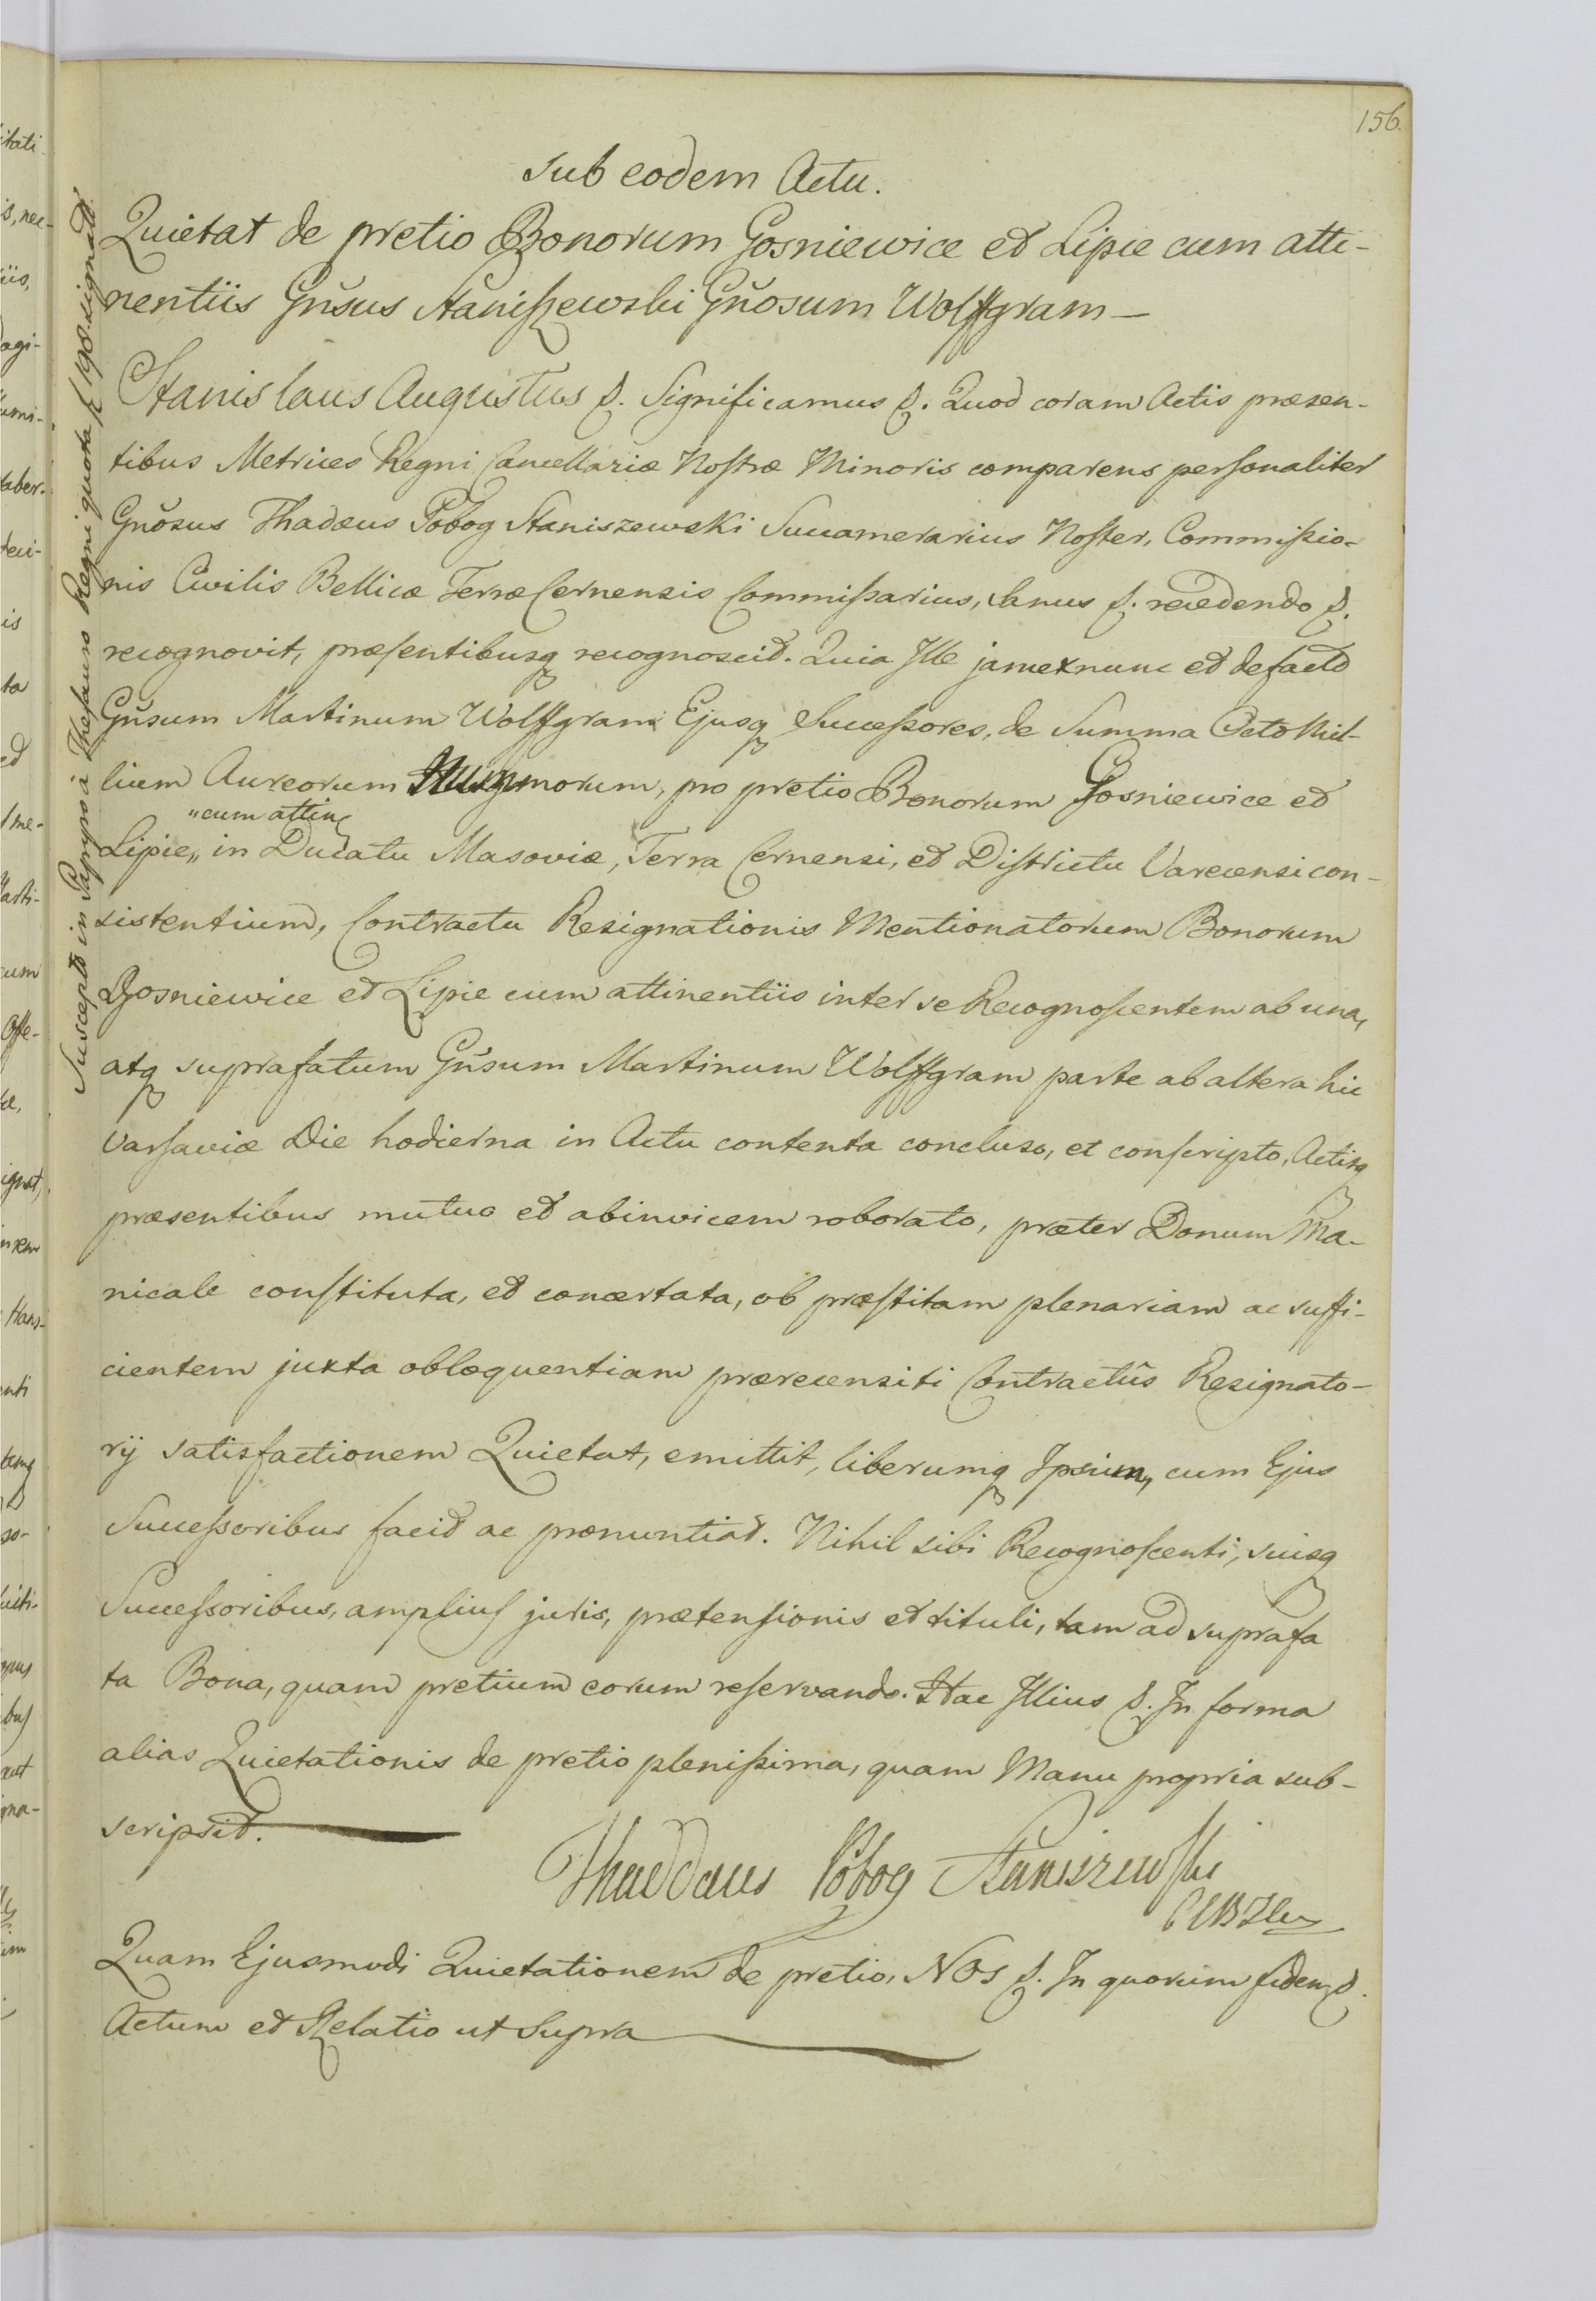 156.
Sub eodem Actu.
Quietat de pretio Bonorum Gosniewice et Lipie cum atti-
nentiis Gnŏsus Staniszewski Gnŏsum Wolffgram —
Stanislaus Augustus &. Significamus &. Quod coram Actis præsen-
tibus Metrices Regni Cancellariæ Nostræ Minoris comparens personaliter
Gnŏsus Thadæus Pobog Staniszewski Succamerarius Noster, Commissio-
nis Civilis Bellicæ Terræ Cernensis Commissarius, Sanus &. recedendo &.
recognovit, præsentibusq recognoscit. Quia Ille jam ex nunc et de facto
Gnŏsum Martinum Wolffgram Ejusq Successores, de Summa Octo Mil-
lium Aureorum Hung morum, pro pretio Bonorum Gosniewice et
„cum attin
Lipie„ in Ducatu Masoviæ, Terra Cernensi, et Districtu Varecensi con-
sistentium, Contractu Resignationis Mentionatorum Bonorum
Gosniewice et Lipie cum attinentiis inter se Recognoscentem ab una,
atq suprafatum Gnŏsum Martinum Wolffgram parte ab altera hic
Varsaviæ Die hodierna in Actu contenta concluso, et conscripto, Actisq
præsentibus mutuo et abinvicem roborato, præter Donum Ma-
nicale constituta, et concertata, ob præstitam plenariam ac suffi-
cientem juxta obloquentiam prærecensiti Contractûs Resignato-
rij satisfactionem Quietat, emittit, liberumq Ipsum, cum Ejus
Successoribus facit ac pronuntiat. Nihil sibi Recognoscenti, suisq
Successoribus, amplius juris, prætensionis et tituli, tam ad suprafa
ta Bona, quam pretium eorum reservando. Hac Illius &. In forma
alias Quietationis de pretio plenissima, quam Manu propria sub-
scripsit.
Thaddaeus Pobog Staniszewski
Quam Ejusmodi Quietationem de pretio, Nos &. In quorum fidem &.
Actum et Relatio ut Supra
Suscepta in Papyro à Thesauro Regni quota fl 190. signata